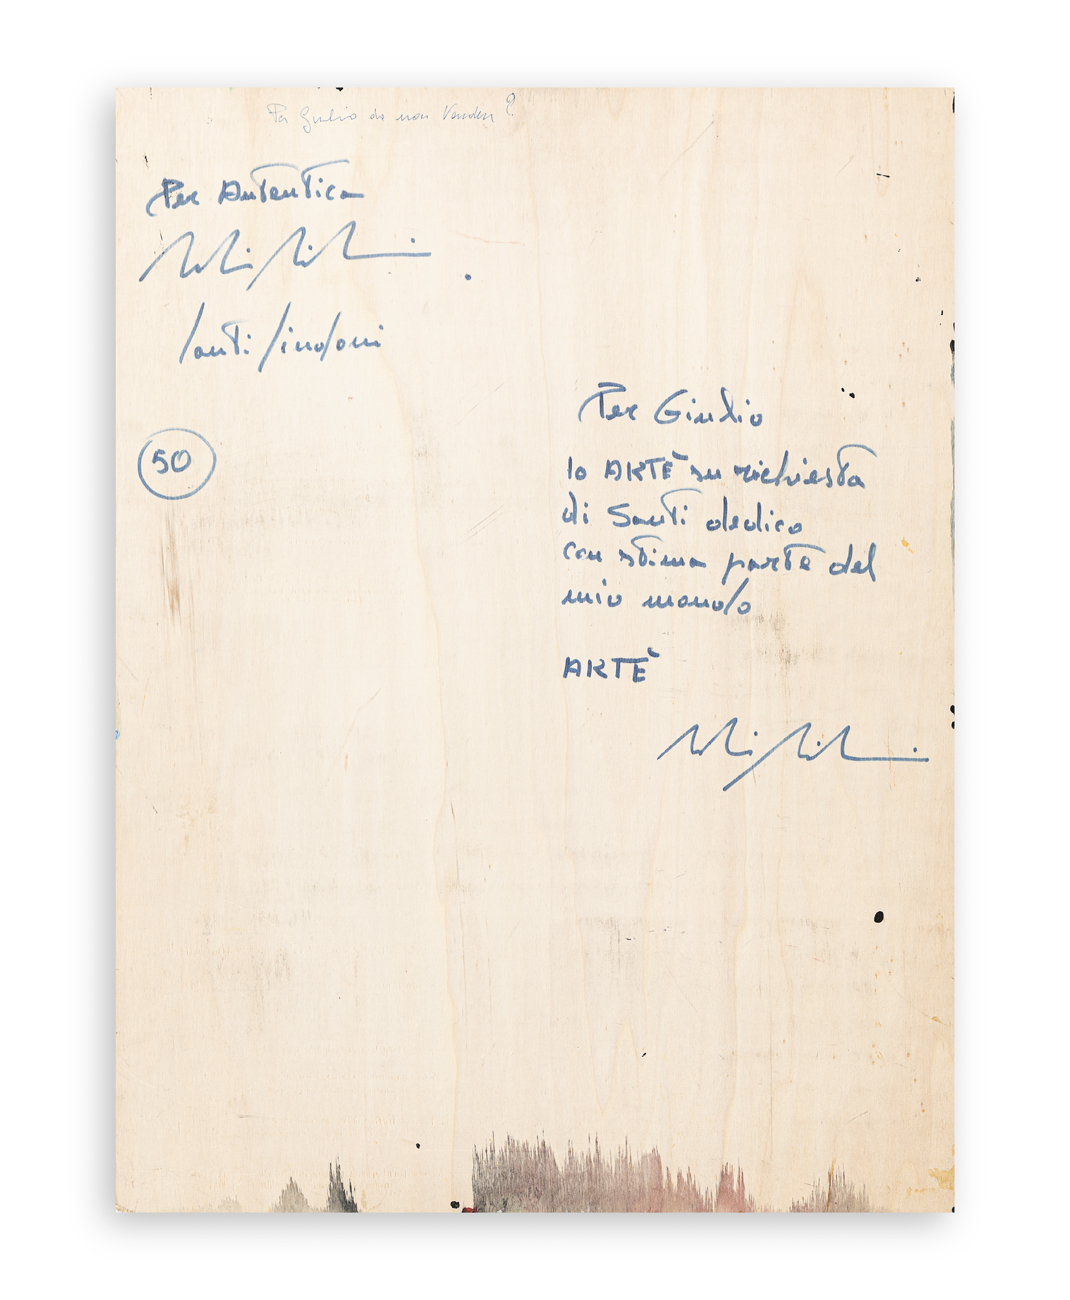 Per Giulio da non Vendere
Per Autentica
Santi Sindoni
50
Per Giulio
Io ARTÈ su richiesta
di Santi dedico
con stima parte del
mio mondo
ARTÈ